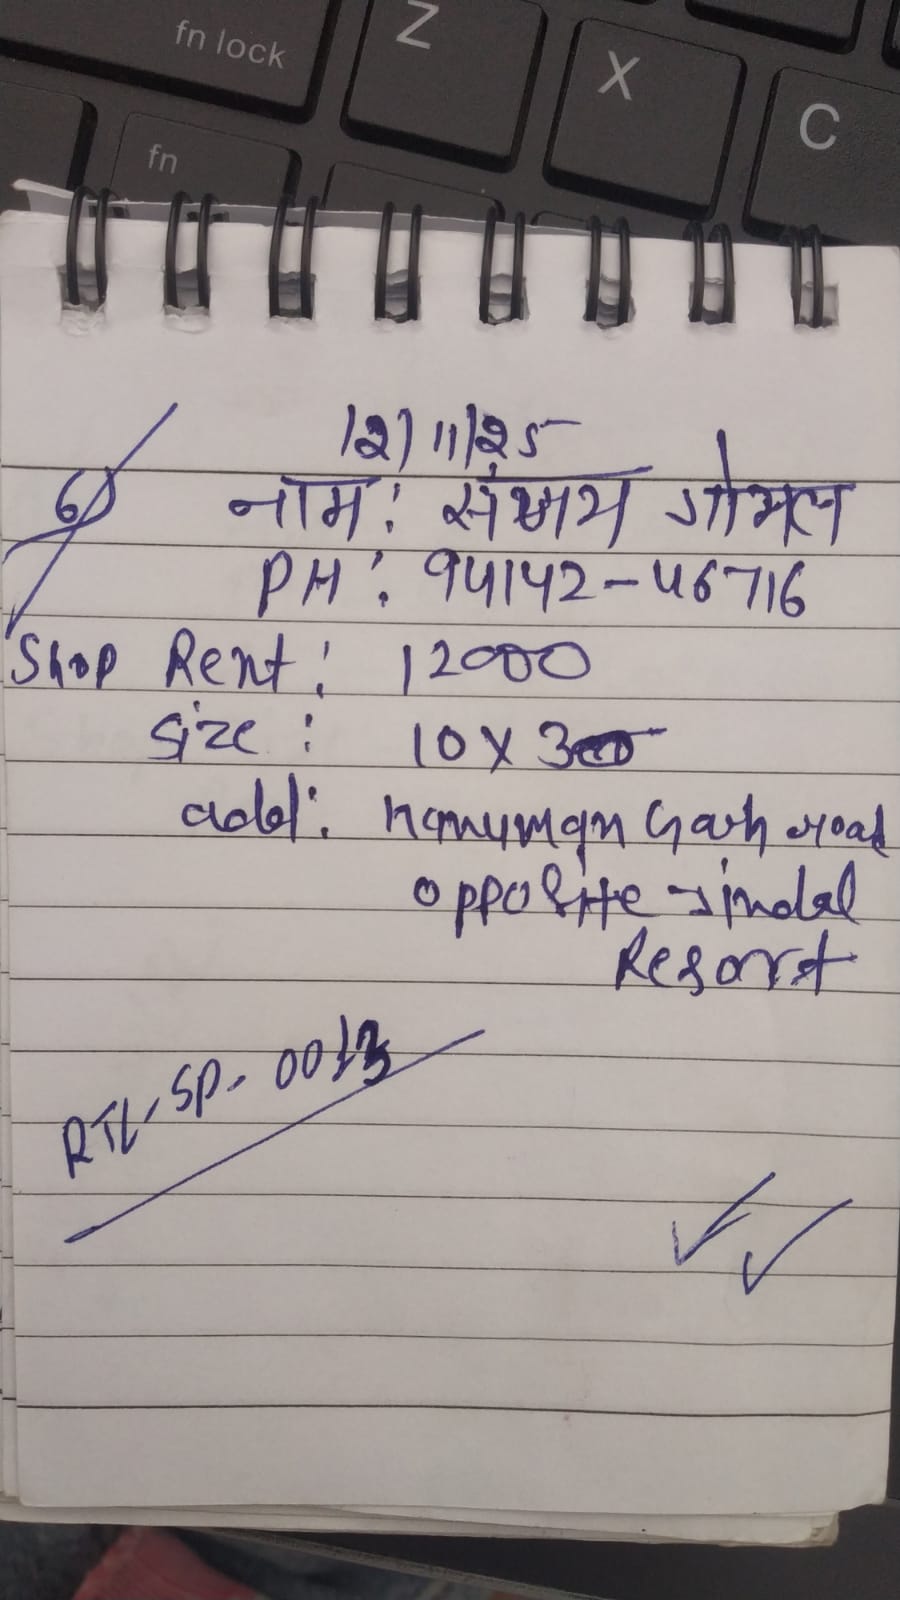 fn lock
Z
X
C
fn
12/11/25
6)
नाम: संजय गोयल
PH: 94142-46716
Shop Rent: 12000
Size: 10 X 30
add: Hanuman Garh road
opposite Jindal
Resort
RTL-SP-0013